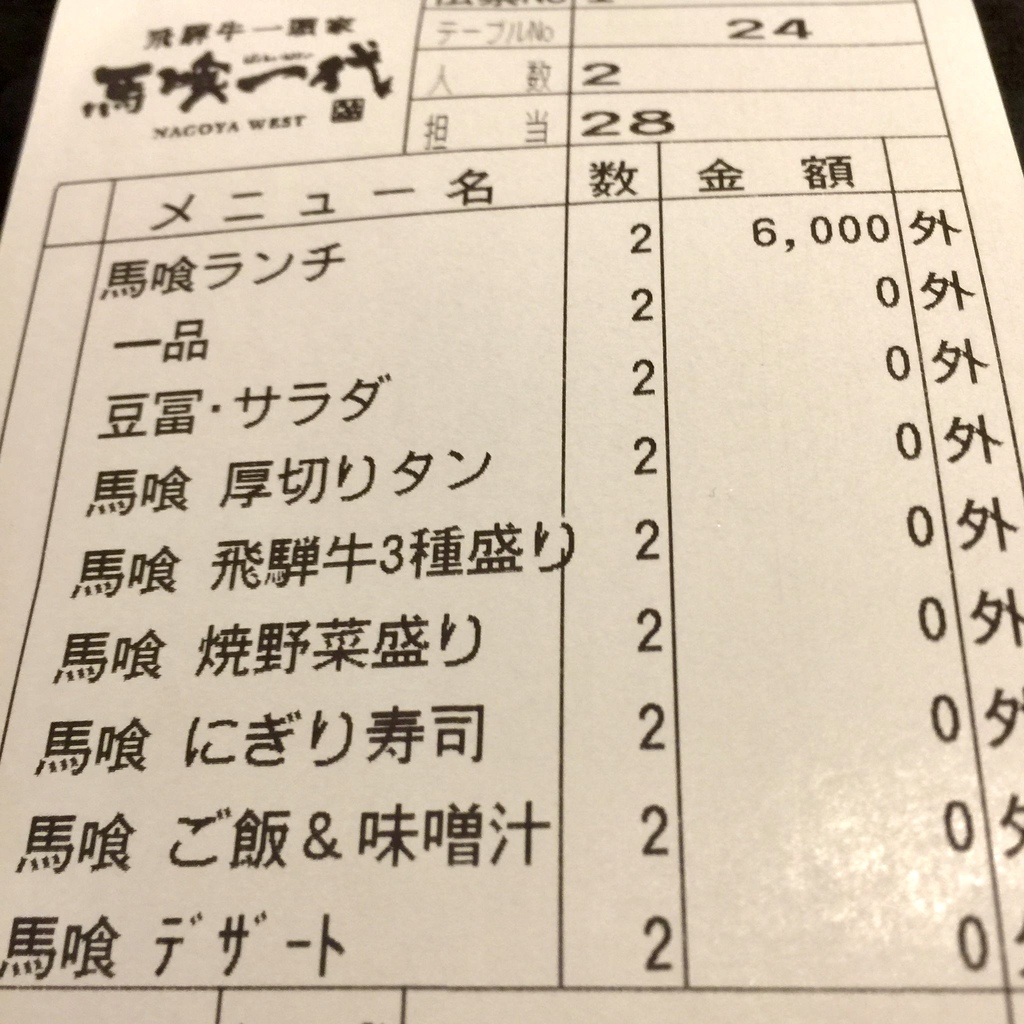 飛騨牛一頭家
馬喰一代
NAGOYA WEST
テーブルNo 24
人数 2
担当 28
メニュー名 数 金額
馬喰ランチ 2 6,000 外
一品 2 0 外
豆冨・サラダ 2 0 外
馬喰 厚切りタン 2 0 外
馬喰 飛騨牛3種盛り 2 0 外
馬喰 焼野菜盛り 2 0 外
馬喰 にぎり寿司 2 0 外
馬喰 ご飯&味噌汁 2 0
馬喰 ﾃﾞｻﾞｰﾄ 2 0